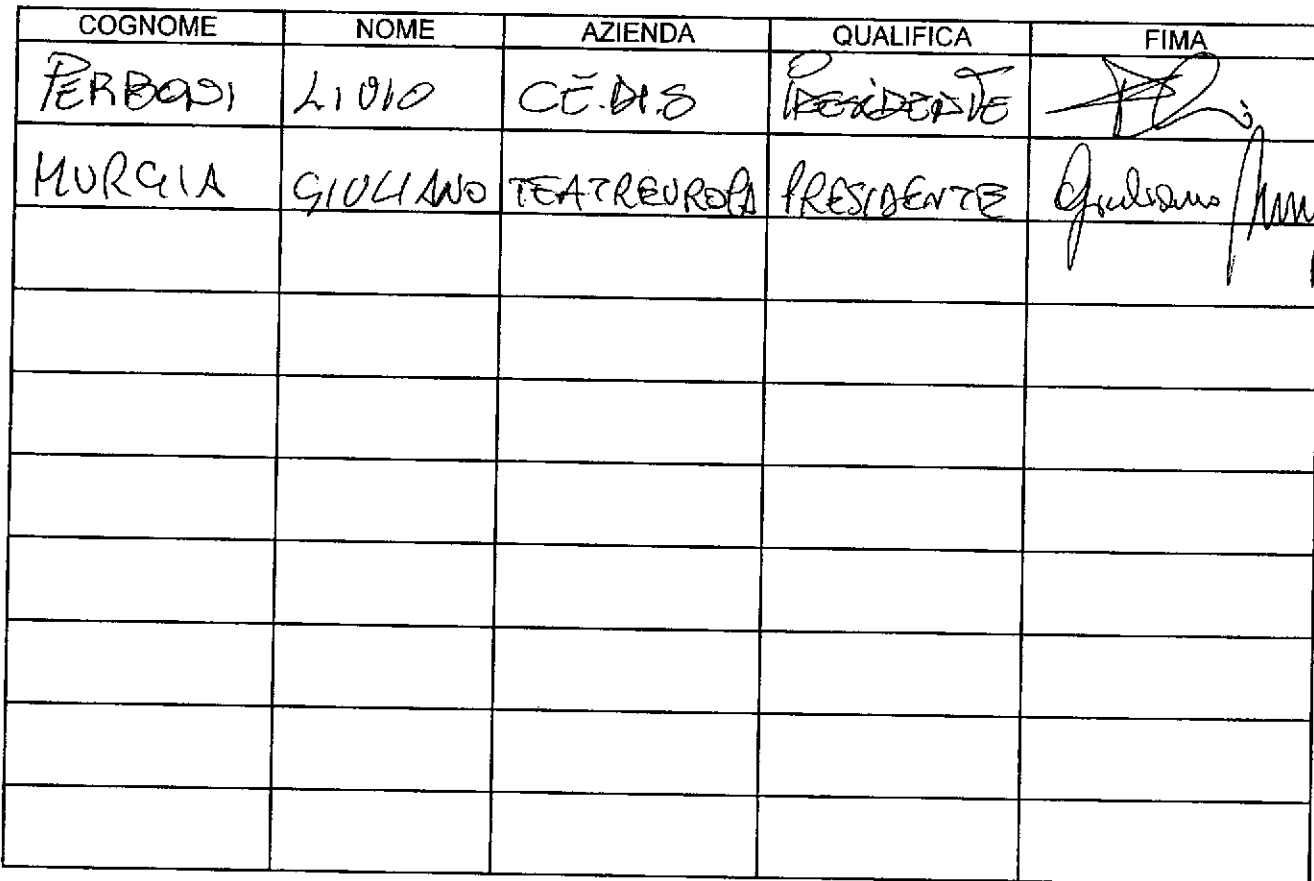 COGNOME NOME AZIENDA QUALIFICA FIMA
PERBONI LIVIO CE.DI.S PRESIDENTE
MURGIA GIULIANO TEATREUROPA PRESIDENTE Giuliano